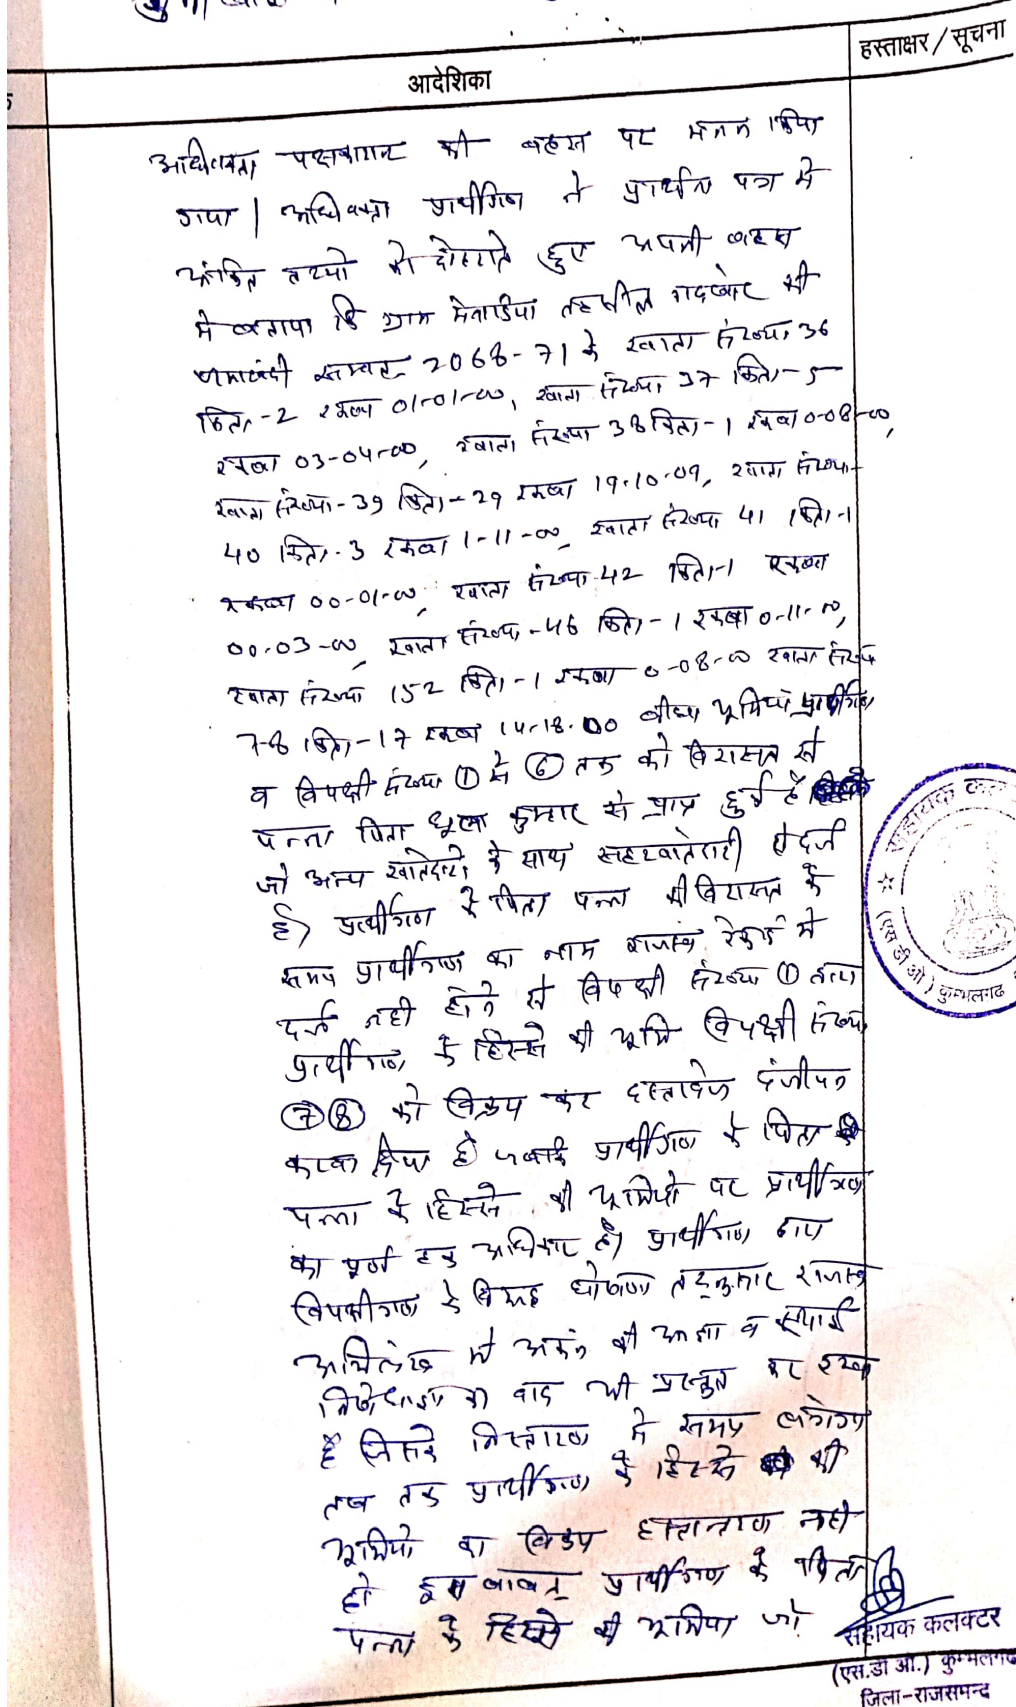 हस्ताक्षर/सूचना
आदेशिका
अधिवक्ता पक्षकारान की बहस पर मनन किया
गया | अधिवक्ता प्रार्थीगण ने प्रार्थना पत्र मे
अंकित तथ्यो को दोहराते हुए अपनी बहस
मे बताया कि ग्राम मेवाडिया तहसील गढबोर की
जमाबंदी सम्वत 2068-71 के खाता संख्या 36
किता-2 रकबा 01-01-00, खाता संख्या 37 किता-5
रकबा 03-04-00, खाता संख्या 38 किता-1 रकबा 0-08-00,
खाता संख्या-39 किता-29 रकबा 19-10-09, खाता संख्या
40 किता-3 रकबा 1-11-00, खाता संख्या 41 किता-1
रकबा 00-01-00, खाता संख्या 42 किता-1 रकबा
00-03-00, खाता संख्या-46 किता-1 रकबा 0-11-10,
खाता संख्या 152 किता-1 रकबा 0-08-00 खाता संख्या
7-8 किता-17 रकबा 14-18-00 बीघा भूमियां प्रार्थीगण
व विपक्षी संख्या (1) से (6) तक को विरासत से
पन्ना पिता धूला कुम्हार से प्राप्त हुई है
जो अन्य खातेदारो के साथ सहखातेदारी मे दर्ज
है। प्रार्थीगण के पिता पन्ना की विरासत के
समय प्रार्थीगण का नाम राजस्व रेकार्ड मे
दर्ज नही होने से विपक्षी संख्या (1) द्वारा
प्रार्थीगण के हिस्से की भूमि विपक्षी संख्या
(7)(8) को विक्रय कर दस्तावेज पंजीयन
करवा दिया है जबकि प्रार्थीगण के पिता
पन्ना के हिस्से की भूमियो पर प्रार्थीगण
का पूर्ण हक अधिकार है। प्रार्थीगण द्वारा
विपक्षीगण के विरूद्ध घोषणा तद्नुसार राजस्व
अभिलेख मे अंकन की आज्ञा व स्थाई
निषेधाज्ञा का वाद भी प्रस्तुत कर रखा
है जिसके निस्तारण मे समय लगेगा
तब तक प्रार्थीगण के हिस्से की
भूमियो का विक्रय हस्तान्तरण नही
हो इस बाबत् प्रार्थीगण के पिता
पन्ना के हिस्से की भूमिया जो
सहायक कलक्टर
(एस डी ओ) कुम्भलगढ
सहायक कलक्टर
(एस.डी ओ.) कुम्भलगढ
जिला-राजसमन्द